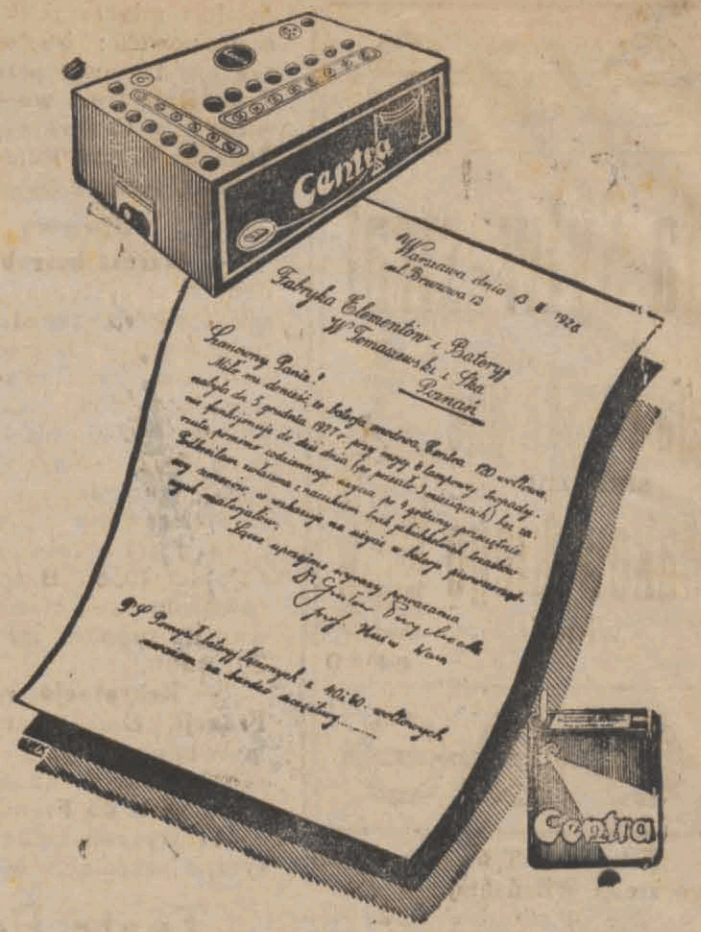 Centra
Warszawa dnia 13 III 1928
ul. Brzozowa 12
Fabryka Elementów i Bateryj
W Tomaszewski i Ska
Poznań
Szanowny Panie!
Miło mi donieść, że baterja anodowa „Centra" 120 woltowa,
nabyta dn 5 grudnia 1927 r. przy mojej 6 lampowej
funkcjonuje do dziś dnia (po przeszło 3 miesiącach) bez
pomimo codziennego użycia po 4 godziny przeciętnie
na zużycie w baterji pierwszorzęd-
nych materjałów.
Łączę uprzejme wyrazy poważania
Dr Gustaw
prof. Uniw Warsz
P.S. Pomysł bateryj łącznych z 40 i 60 woltowych
uważam za bardzo szczęśliwy
Centra